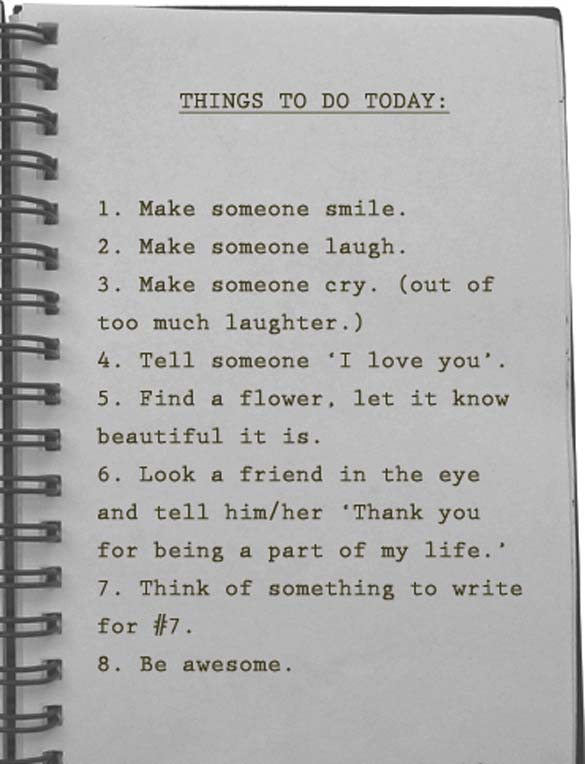 THINGS TO DO TODAY:
1. Make someone smile.
2. Make someone laugh.
3. Make someone cry. (out of
too much laughter.)
4. Tell someone ‘I love you’.
5. Find a flower, let it know
beautiful it is.
6. Look a friend in the eye
and tell him/her ‘Thank you
for being a part of my life.’
7. Think of something to write
for #7.
8. Be awesome.